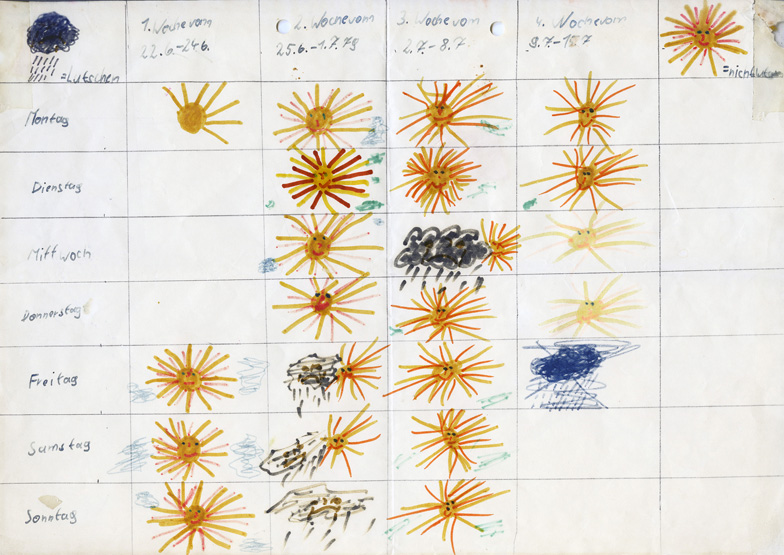 1. Woche vom
22.6.-24.6.
2. Woche vom
25.6.-1.7.79
3. Woche vom
2.7.-8.7.
4. Woche vom
=Lutschen
=nichtlutschen
Montag
Dienstag
Mittwoch
Donnerstag
Freitag
Samstag
Sonntag